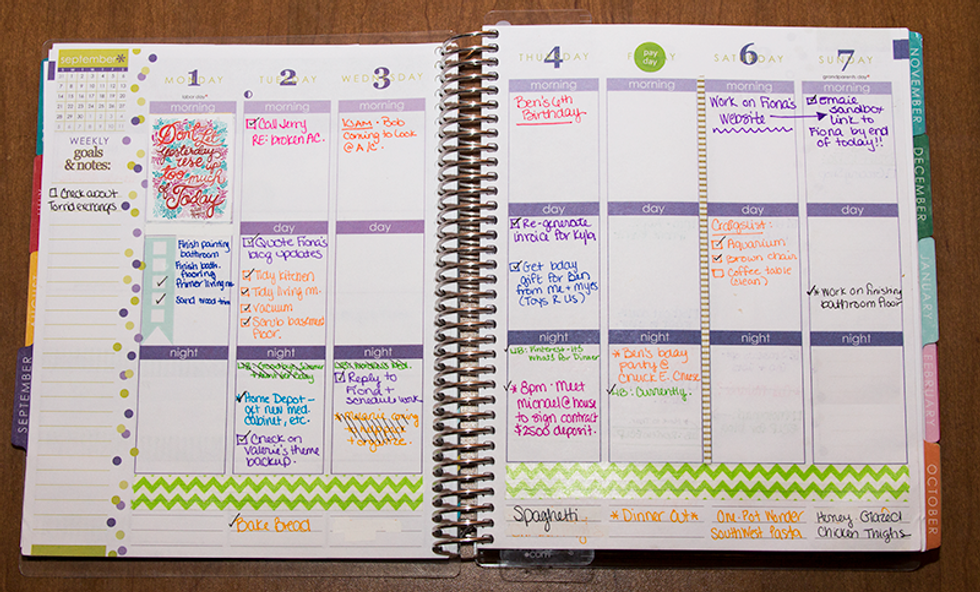 september*
S M T W T F S
WEEKLY
goals
& notes:
Check about
Torrid exchange
1
MONDAY
labor day*
morning
Don't let
yesterday
use up
too much
of Today
Finish painting
bathroom
Finish bath.
flooring
Primer living rm.
Sand wood trim
night
2
TUESDAY
morning
Call Jerry
RE: broken A.C.
day
Quote Fiona's
blog updates
Tidy kitchen
Tidy living rm.
Vacuum
Scrub basement
floor.
night
Home Depot -
get new med.
cabinet, etc.
Check on
Valerie's theme
backup.
Bake Bread
3
WEDNESDAY
morning
10AM - Bob
Coming to look
@ A/C.
day
night
Reply to
Fiona +
schedule work
+ organize.
THURSDAY
4
morning
Ben's 6th
Birthday
day
Re-generate
invoice for Kyla
Get bday
gift for Ben
from me + myles
(Toys R Us)
night
WB: Pinterest - It's
What's for Dinner
* 8pm - Meet
michael @ house
to sign contract
$2500 deposit.
Spaghetti
pay
day
morning
day
night
* Ben's bday
party @
Chuck E. Cheese
WB: Currently.
* Dinner Out *
SATURDAY
6
morning
Work on Fiona's
Website
day
Craigslist:
Aquarium
Brown chair
Coffee table
(clean)
night
One-Pot Wonder
SouthWest Pasta
SUNDAY
7
grandparents day*
morning
Email
sandbox
link to
Fiona by end
of today!!
day
* Work on finishing
bathroom floor
night
Honey Glazed
Chicken Thighs
NOVEMBER
DECEMBER
JANUARY
FEBRUARY
OCTOBER
SEPTEMBER
.com